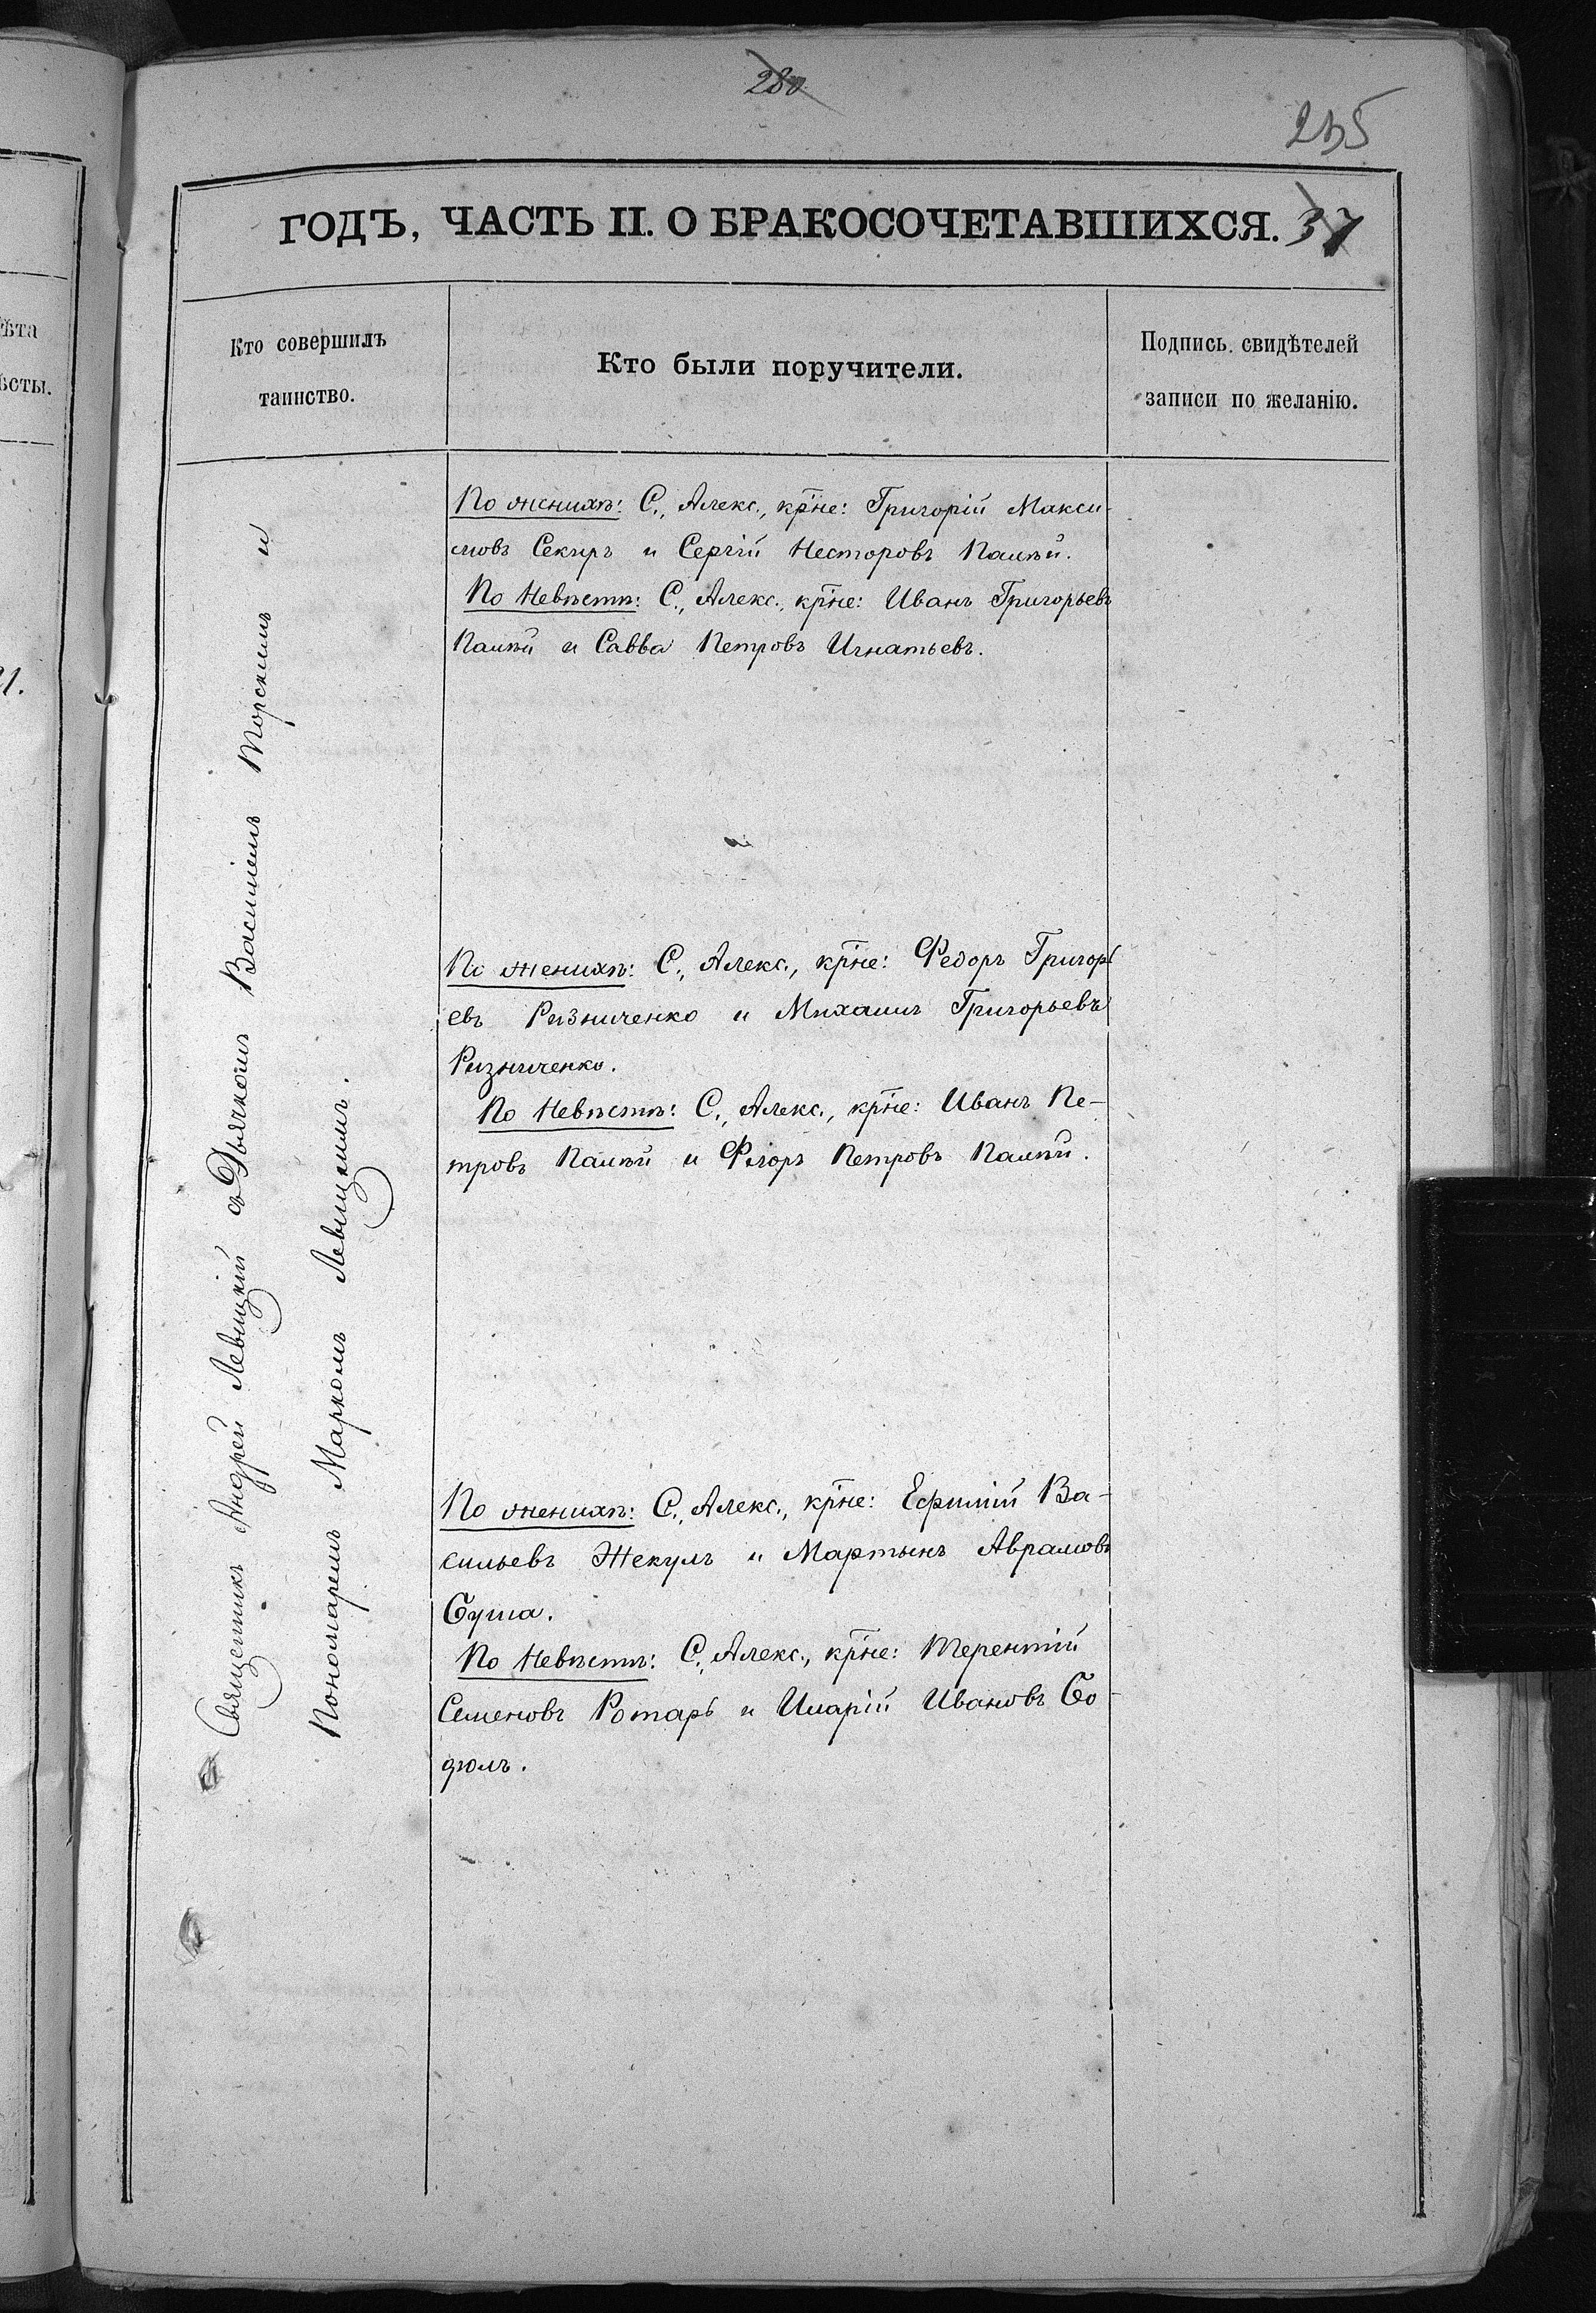 280
235
ГОДЪ, ЧАСТЬ II. О БРАКОСОЧЕТАВШИХСЯ. 37
Кто совершилъ
таинство.
Кто были поручители.
Подпись свидѣтелей
записи по желанію.
ѣта
ѣсты.
21.
Священникъ Андрей Левицкій съ Дьякомъ Василіемъ Торскимъ и
Пономаремъ Маркомъ Левицкимъ.
По женихѣ: С., Алекс., кр҃не: Григорій Макси-
мовъ Секиръ и Сергій Несторовъ Палѣй.
По Невѣстѣ: С., Алекс., кр҃не: Иванъ Григорьевъ
Палѣй и Савва Петровъ Игнатьевъ.
По женихѣ: С., Алекс., кр҃не: Федоръ Григорь
евъ Ризниченко и Михаилъ Григорьевъ
Ризниченко.
По Невѣстѣ: С., Алекс., кр҃не: Иванъ Пе-
тровъ Палѣй и Флоръ Петровъ Палѣй.
По женихѣ: С., Алекс., кр҃не: Ефимій Ва-
сильевъ Жекулъ и Мартынъ Аврамовъ
Буша.
По Невѣстѣ: С., Алекс., кр҃не: Терентій
Семеновъ Ротарь и Иларій Ивановъ Бо-
дюлъ.